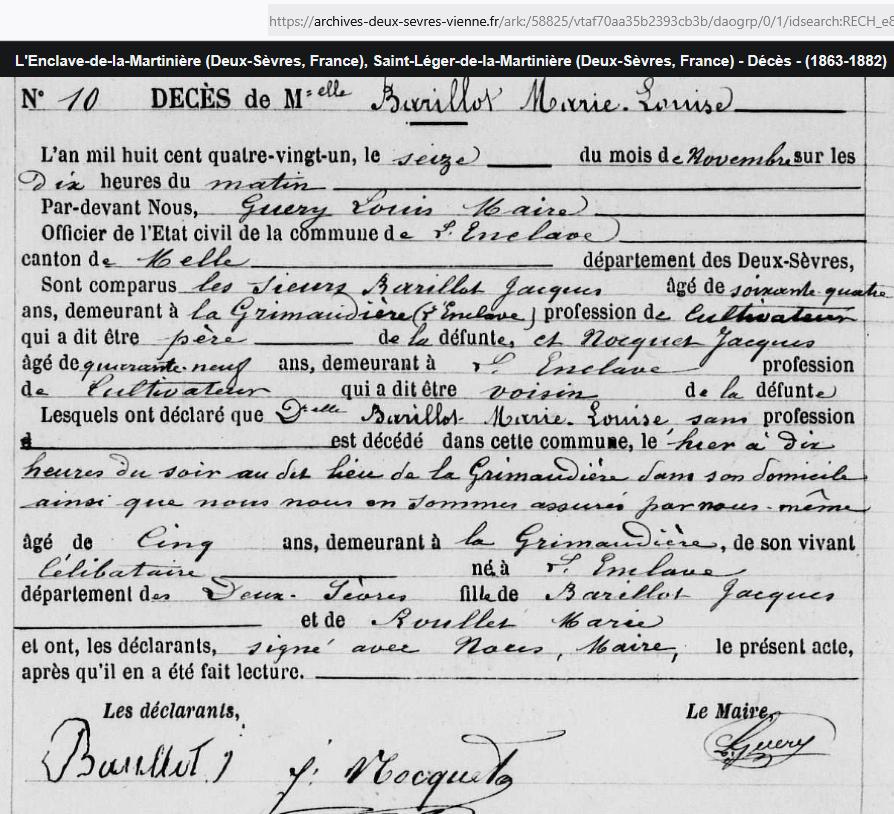 https://archives-deux-sevres-vienne.fr/ark:/58825/vtaf70aa35b2393cb3b/daogrp/0/1/idsearch:RECH_e8
L'Enclave-de-la-Martinière (Deux-Sèvres, France), Saint-Léger-de-la-Martinière (Deux-Sèvres, France) - Décès - (1863-1882)
N° 10 DECÈS de Melle Barillot Marie-Louise
L'an mil huit cent quatre-vingt-un, le seize du mois de Novembre sur les
Dix heures du matin
Par-devant Nous, Guery Louis Maire
Officier de l'Etat civil de la commune de l'Enclave
canton de Melle département des Deux-Sèvres,
Sont comparus les sieurs Barillot Jacques âgé de soixante-quatre
ans, demeurant à la Grimaudière (l'Enclave) profession de Cultivateur
qui a dit être père de la défunte, et Nocquet Jacques
âgé de quarante-neuf ans, demeurant à l'Enclave profession
de Cultivateur qui a dit être voisin de la défunte
Lesquels ont déclaré que Delle Barillot Marie-Louise, sans profession
est décédé dans cette commune, le hier à dix
heures du soir au dit lieu de la Grimaudière dans son domicile
ainsi que nous nous en sommes assurés par nous-même
âgé de Cinq ans, demeurant à la Grimaudière, de son vivant
Célibataire né à l'Enclave
département des Deux-Sèvres fille de Barillot Jacques
et de Roullet Marie
et ont, les déclarants, signé avec Nous, Maire, le présent acte,
après qu'il en a été fait lecture.
Les déclarants, Le Maire,
Barillot J. Nocquet Guery